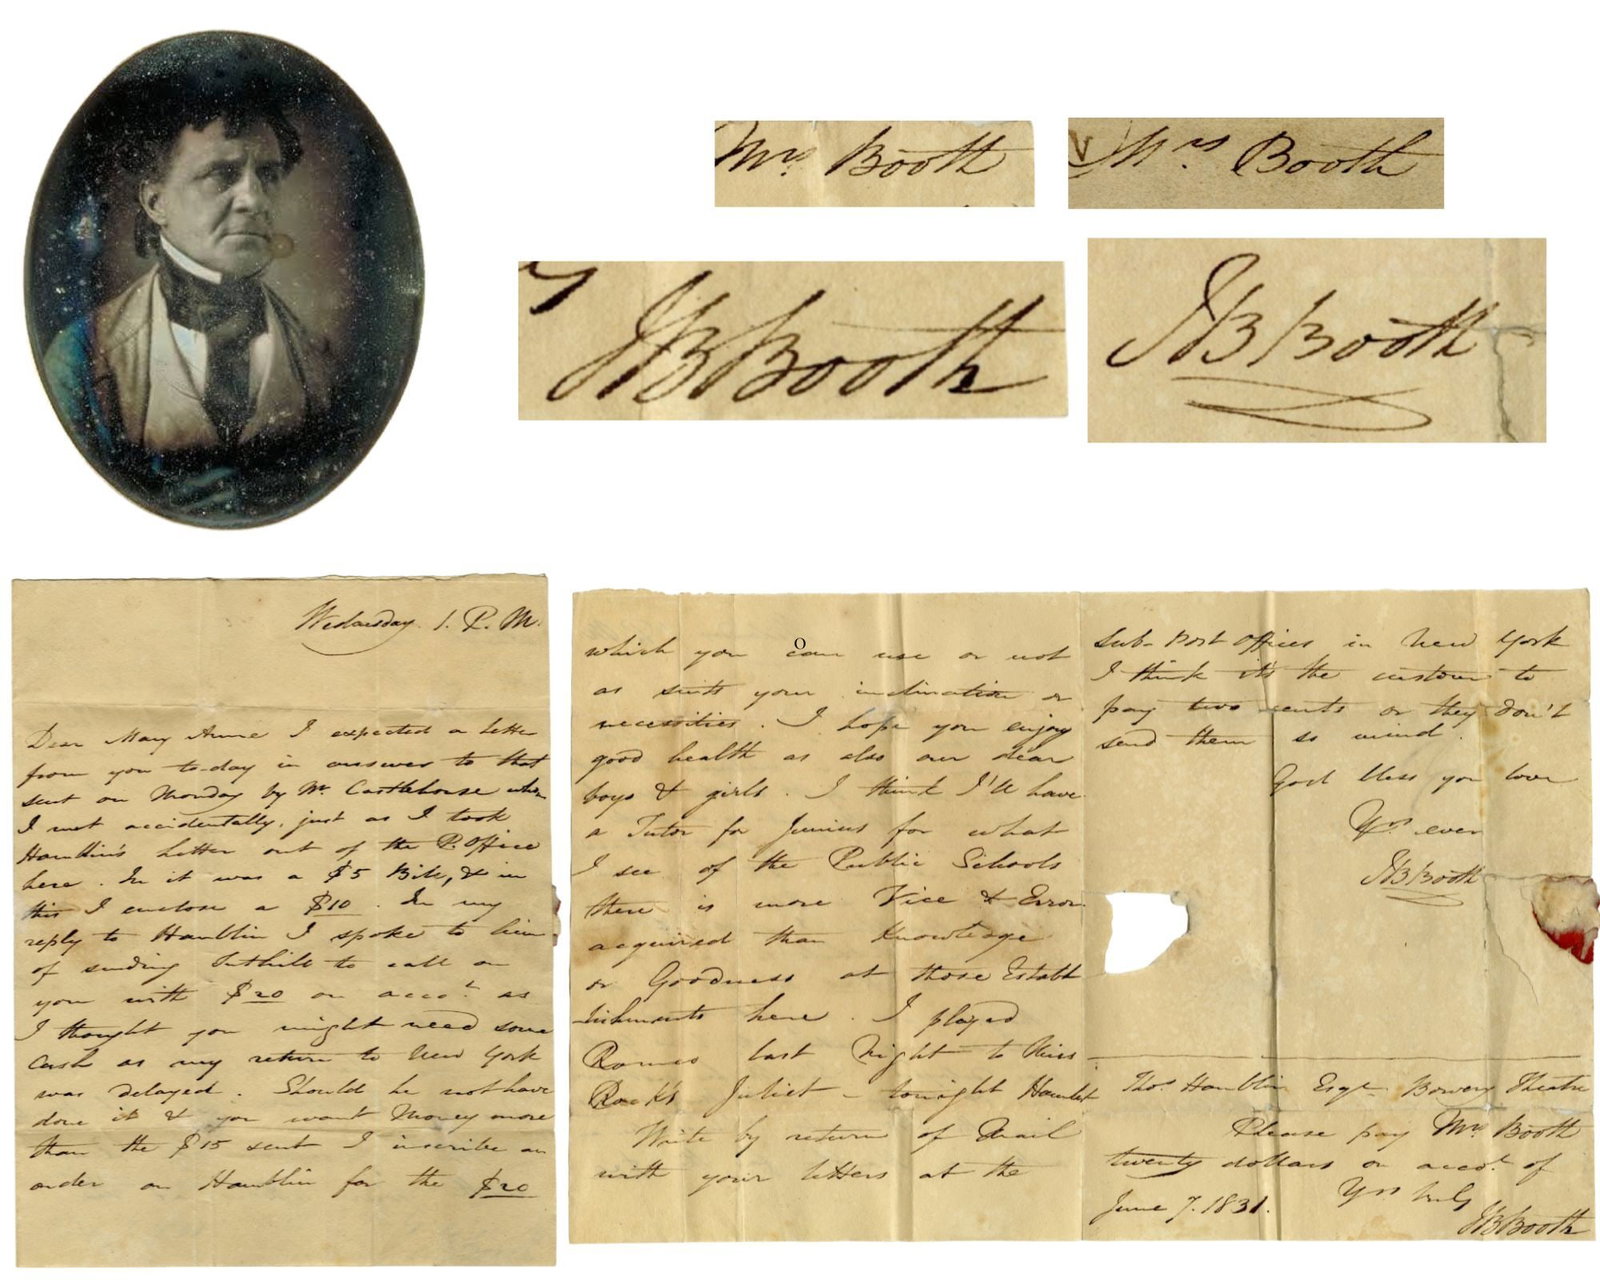 Mrs Booth
Mrs Booth
JB Booth
JB Booth
Wednesday. 1. P. M.
Dear Mary Anne I expected a letter
from you to-day in answer to that
sent on Monday by Mr Castlehouse whom
I met accidentally, just as I took
Hamblin's Letter out of the P. Office
here. In it was a $5 Bill, & in
this I enclose a $10. In my
reply to Hamblin I spoke to him
of sending to call on
you with $20 on accot as
I thought you might need some
cash as my return to New York
was delayed. Should he not have
done it & you want Money more
than the $15 sent I inscribe an
order on Hamblin for the $20
which you can use or not
as suits your inclination or
necessities. I hope you enjoy
good health as also our dear
boys & girls. I think I'll have
a Tutor for Junius for what
I see of the Public Schools
there is more Vice & Error
acquired than Knowledge
or Goodness at those Establ
-lishments here. I played
Romeo last Night to Miss
Rock's Juliet - tonight Hamlet
Write by return of Mail
with your letters at the
Sub-Post Offices in New York
I think it's the custom to
pay two cents or they don't
send them so mind.
God bless you love
Yrs ever
JB Booth
Thos Hamblin Esqr Bowery Theatre
Please pay Mrs Booth
twenty dollars on accot of
Yrs truly
June 7. 1831.
JB Booth